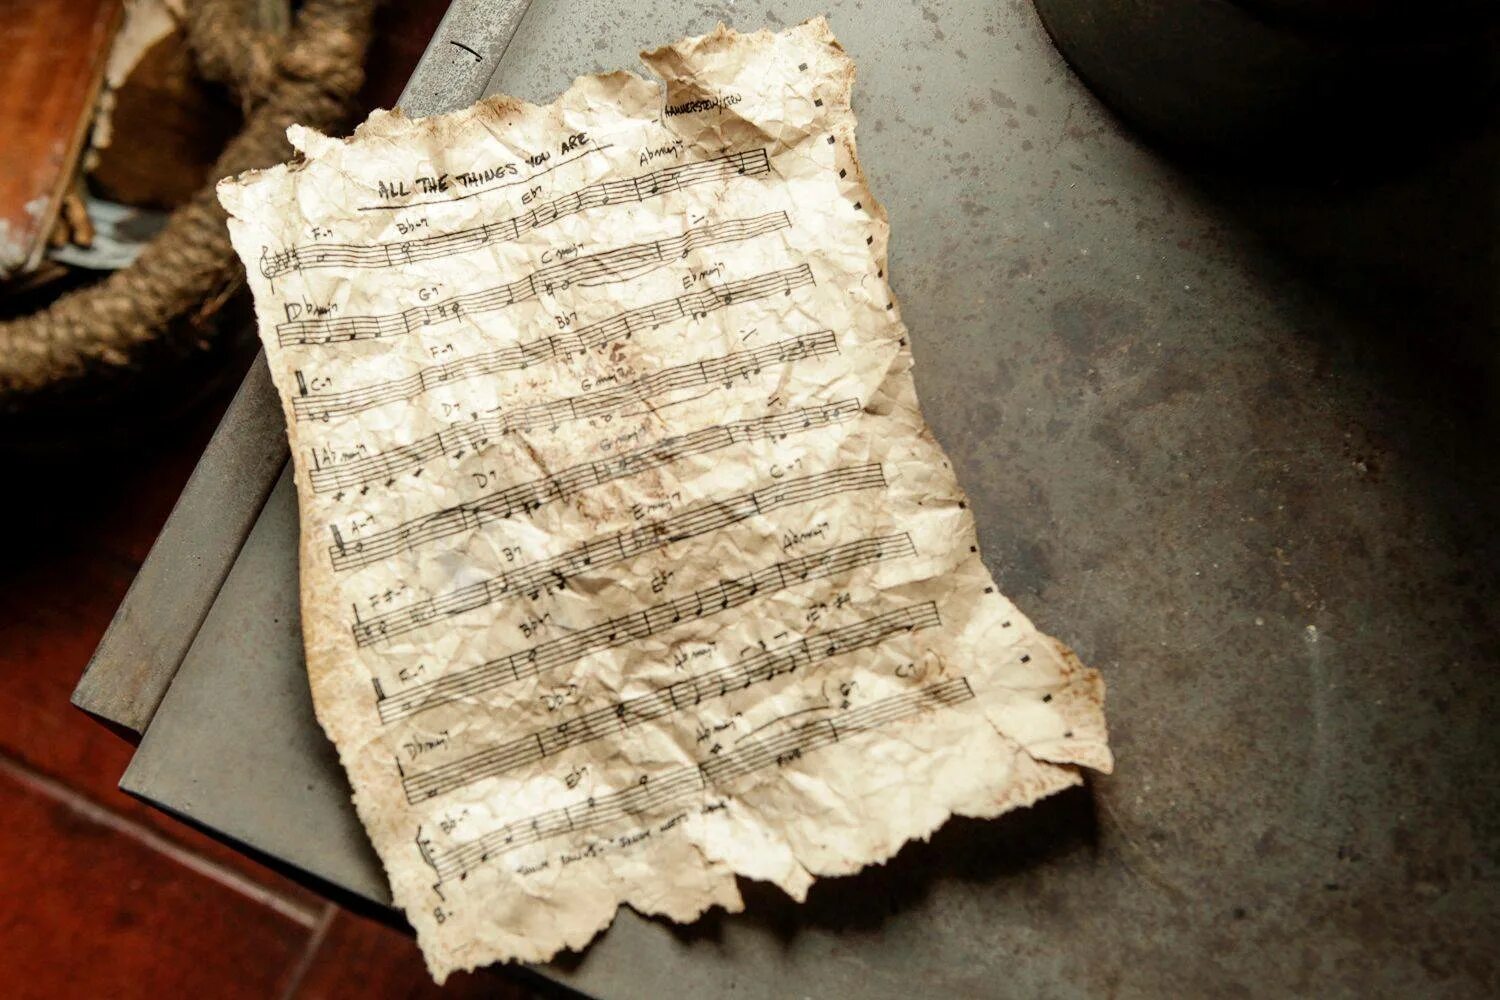 ALL THE THINGS YOU ARE
HAMMERSTEIN/KERN
F-7 Bb-7 Eb7 Abmaj7
Dbmaj7 G7 Cmaj7
C-7 F-7 Bb7 Ebmaj7
Abmaj7 D7 Gmaj7
A-7 D7 Gmaj7
F#-7 B7 Emaj7 C+7
F-7 Bb-7 Eb7 Abmaj7
Dbmaj7 Db-7 Abmaj7
Bb-7 Eb7 Abmaj7 (G7 C7)
FINE
8.